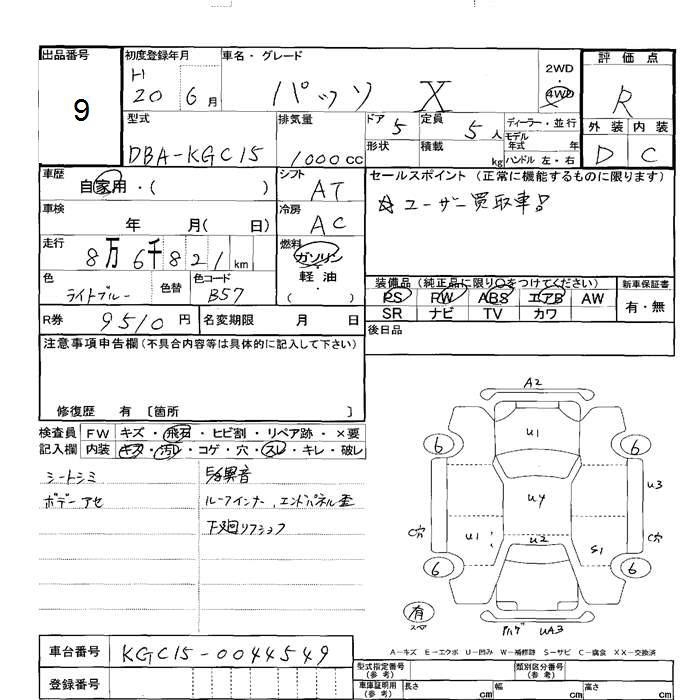 出品番号 初度登録年月 車名・グレード 2WD・4WD 評価点
9 H20 6月 パッソ X R
型式 排気量 ドア 5 定員 5人 ディーラー・並行 外装 内装
DBA-KGC15 1000cc 形状 積載 kg モデル年式 年 ハンドル 左・右 D C
車歴 自家用・( ) シフト AT セールスポイント(正常に機能するものに限ります)
車検 年 月( 日) 冷房 AC ☆ユーザー買取車!
走行 8万6千821km 燃料 ガソリン・軽油( )
色 ライトブルー 色替 色コード B57 装備品(純正品に限り○をつけてください) 新車保証書
PS PW ABS エアB AW 有・無
SR ナビ TV カワ
R券 9510円 名変期限 月 日 後日品
注意事項申告欄(不具合内容等は具体的に記入して下さい)
修復歴 有 〔箇所 〕
検査員記入欄 FW キズ・飛石・ヒビ割・リペア跡・×要
内装 キズ・汚レ・コゲ・穴・スレ・キレ・破レ
シートシミ 異音
ボデーアセ ルーフインナー、エンドパネル歪
下廻リ
A2
U1
6 6
U3
U4
C穴 U1 U2 S1 C穴
6 6
有
スペ UA3
A-キズ E-エクボ U-凹み W-補修跡 S-サビ C-腐食 XX-交換済
車台番号 KGC15-0044549
登録番号
型式指定番号(参考) 類別区分番号(参考)
車庫証明用(参考) 長さ cm 幅 cm 高さ cm